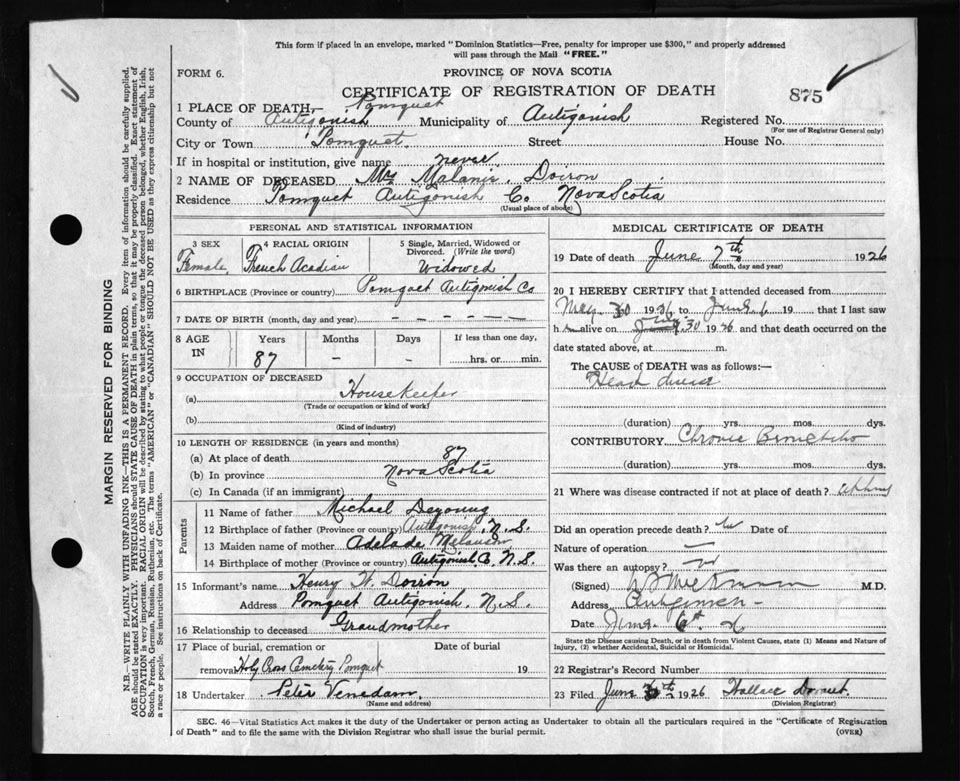 This form if placed in an envelope, marked "Dominion Statistics—Free, penalty for improper use $300," and properly addressed
will pass through the Mail "FREE."
FORM 6.
PROVINCE OF NOVA SCOTIA
CERTIFICATE OF REGISTRATION OF DEATH
875
1 PLACE OF DEATH,— Pomquet
County of Antigonish Municipality of Antigonish Registered No.
(For use of Registrar General only)
City or Town Pomquet. Street House No.
If in hospital or institution, give name
2 NAME OF DECEASED Mrs Malanie Doiron
Residence Pomquet Antigonish Co. Nova Scotia
(Usual place of abode)
PERSONAL AND STATISTICAL INFORMATION
3 SEX 4 RACIAL ORIGIN 5 Single, Married, Widowed or
Divorced. (Write the word)
Female, French Acadian Widowed
6 BIRTHPLACE (Province or country) Pomquet Antigonish Co
7 DATE OF BIRTH (month, day and year) – – – – –
8 AGE IN Years Months Days If less than one day,
87 – – hrs. or min.
9 OCCUPATION OF DECEASED
(a) Housekeeper
(Trade or occupation or kind of work)
(b)
(Kind of industry)
10 LENGTH OF RESIDENCE (in years and months)
(a) At place of death 87
(b) In province Nova Scotia
(c) In Canada (if an immigrant)
Parents
11 Name of father Michael Deyoung
12 Birthplace of father (Province or country) Antigonish, N.S.
13 Maiden name of mother Adelade Melanson
14 Birthplace of mother (Province or country) Antigonish Co, N.S.
15 Informant's name Henry W. Doiron
Address Pomquet Antigonish. N.S.
16 Relationship to deceased Grandmother
17 Place of burial, cremation or Date of burial
removal Holy Cross Cemetery Pomquet 19
18 Undertaker Peter Venedam
(Name and address)
MEDICAL CERTIFICATE OF DEATH
19 Date of death June 7th 1926
(Month, day and year)
20 I HEREBY CERTIFY that I attended deceased from
May 30 1926 to June 6 19 that I last saw
h alive on 30 1926 and that death occurred on the
date stated above, at m.
The CAUSE OF DEATH was as follows:—
Heart disease
(duration) yrs. mos. dys.
CONTRIBUTORY Chronic Bronchitis
(duration) yrs. mos. dys.
21 Where was disease contracted if not at place of death?
Did an operation precede death? no Date of
Nature of operation —
Was there an autopsy? no
(Signed) M.D.
Address Antigonish
Date June 6th 26
State the Disease causing Death, or in death from Violent Causes, state (1) Means and Nature of
Injury, (2) whether Accidental, Suicidal or Homicidal.
22 Registrar's Record Number
23 Filed June 1926 Wallace
(Division Registrar)
SEC. 46—Vital Statistics Act makes it the duty of the Undertaker or person acting as Undertaker to obtain all the particulars required in the "Certificate of Registration
of Death" and to file the same with the Division Registrar who shall issue the burial permit.
(OVER)
MARGIN RESERVED FOR BINDING
N.B.—WRITE PLAINLY WITH UNFADING INK—THIS IS A PERMANENT RECORD. Every item of information should be carefully supplied.
AGE should be stated EXACTLY. PHYSICIANS should STATE CAUSE OF DEATH in plain terms, so that it may be properly classified. Exact statement of
OCCUPATION is very important. RACIAL ORIGIN will be described by stating to what people or tongue the deceased person belonged, whether English, Irish,
Scotch, French, German, Russian, Ruthenian, etc. The terms "AMERICAN" or "CANADIAN" SHOULD NOT BE USED as they express citizenship but not
a race or people. See instructions on back of Certificate.